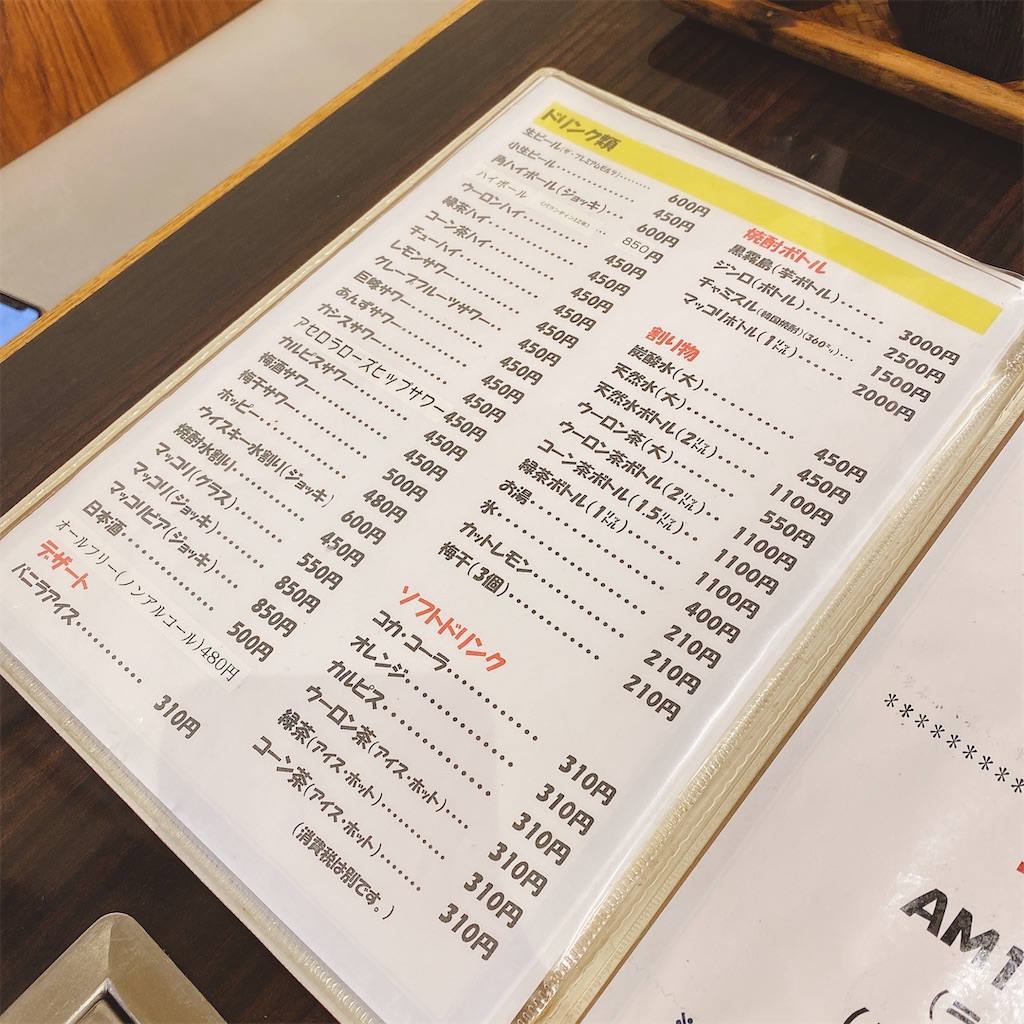 ドリンク類
生ビール(ザ・プレミアムモルツ)‥‥‥‥ 600円
小生ビール‥‥‥‥‥ 450円
角ハイボール(ジョッキ)‥‥ 600円
ハイボール (バランタイン12年) … 850円
ウーロンハイ‥‥‥‥‥ 450円
緑茶ハイ‥‥‥‥‥ 450円
コーン茶ハイ‥‥‥‥‥ 450円
チューハイ‥‥‥‥‥ 450円
レモンサワー‥‥‥‥‥ 450円
グレープフルーツサワー‥‥ 450円
巨峰サワー‥‥‥‥‥ 450円
あんずサワー‥‥‥‥‥ 450円
カシスサワー‥‥‥‥‥ 450円
アセロラローズヒップサワー 450円
カルピスサワー‥‥‥‥‥ 450円
梅酒サワー‥‥‥‥‥ 450円
梅干サワー‥‥‥‥‥ 500円
ホッピー‥‥‥‥‥ 480円
ウイスキー水割り(ジョッキ) 600円
焼酎水割い‥‥‥‥‥ 450円
マッコリ(グラス)‥‥‥‥ 550円
マッコリ(ジョッキ)‥‥‥‥ 850円
マッコリビア(ジョッキ)‥‥ 850円
日本酒‥‥‥‥‥ 500円
オールフリー(ノンアルコール)480円
デザート
バニラアイス‥‥‥‥‥ 310円
焼酎ボトル
黒霧島(芋ボトル)‥‥‥ 3000円
ジンロ(ボトル)‥‥‥‥ 2500円
チャミスル(韓国焼酎)(360㍉)‥‥ 1500円
マッコリボトル(1㍑)‥‥‥ 2000円
割り物
炭酸水(大)‥‥‥‥‥ 450円
天然水(大)‥‥‥‥‥ 450円
天然水ボトル(2㍑)‥‥‥‥ 1100円
ウーロン茶(大)‥‥‥‥‥ 550円
ウーロン茶ボトル(2㍑)‥‥ 1100円
コーン茶ボトル(1.5㍑)‥‥ 1100円
緑茶ボトル(1㍑)‥‥‥‥ 1100円
お湯‥‥‥‥‥ 400円
氷‥‥‥‥‥ 210円
カットレモン‥‥‥‥‥ 210円
梅干(3個)‥‥‥‥‥ 210円
ソフトドリンク
コカ・コーラ‥‥‥‥‥ 310円
オレンジ‥‥‥‥‥ 310円
カルピス‥‥‥‥‥ 310円
ウーロン茶(アイス・ホット)‥‥ 310円
緑茶(アイス・ホット)‥‥‥‥ 310円
コーン茶(アイス・ホット)‥‥‥ 310円
(消費税は別です。)
**********
AM1